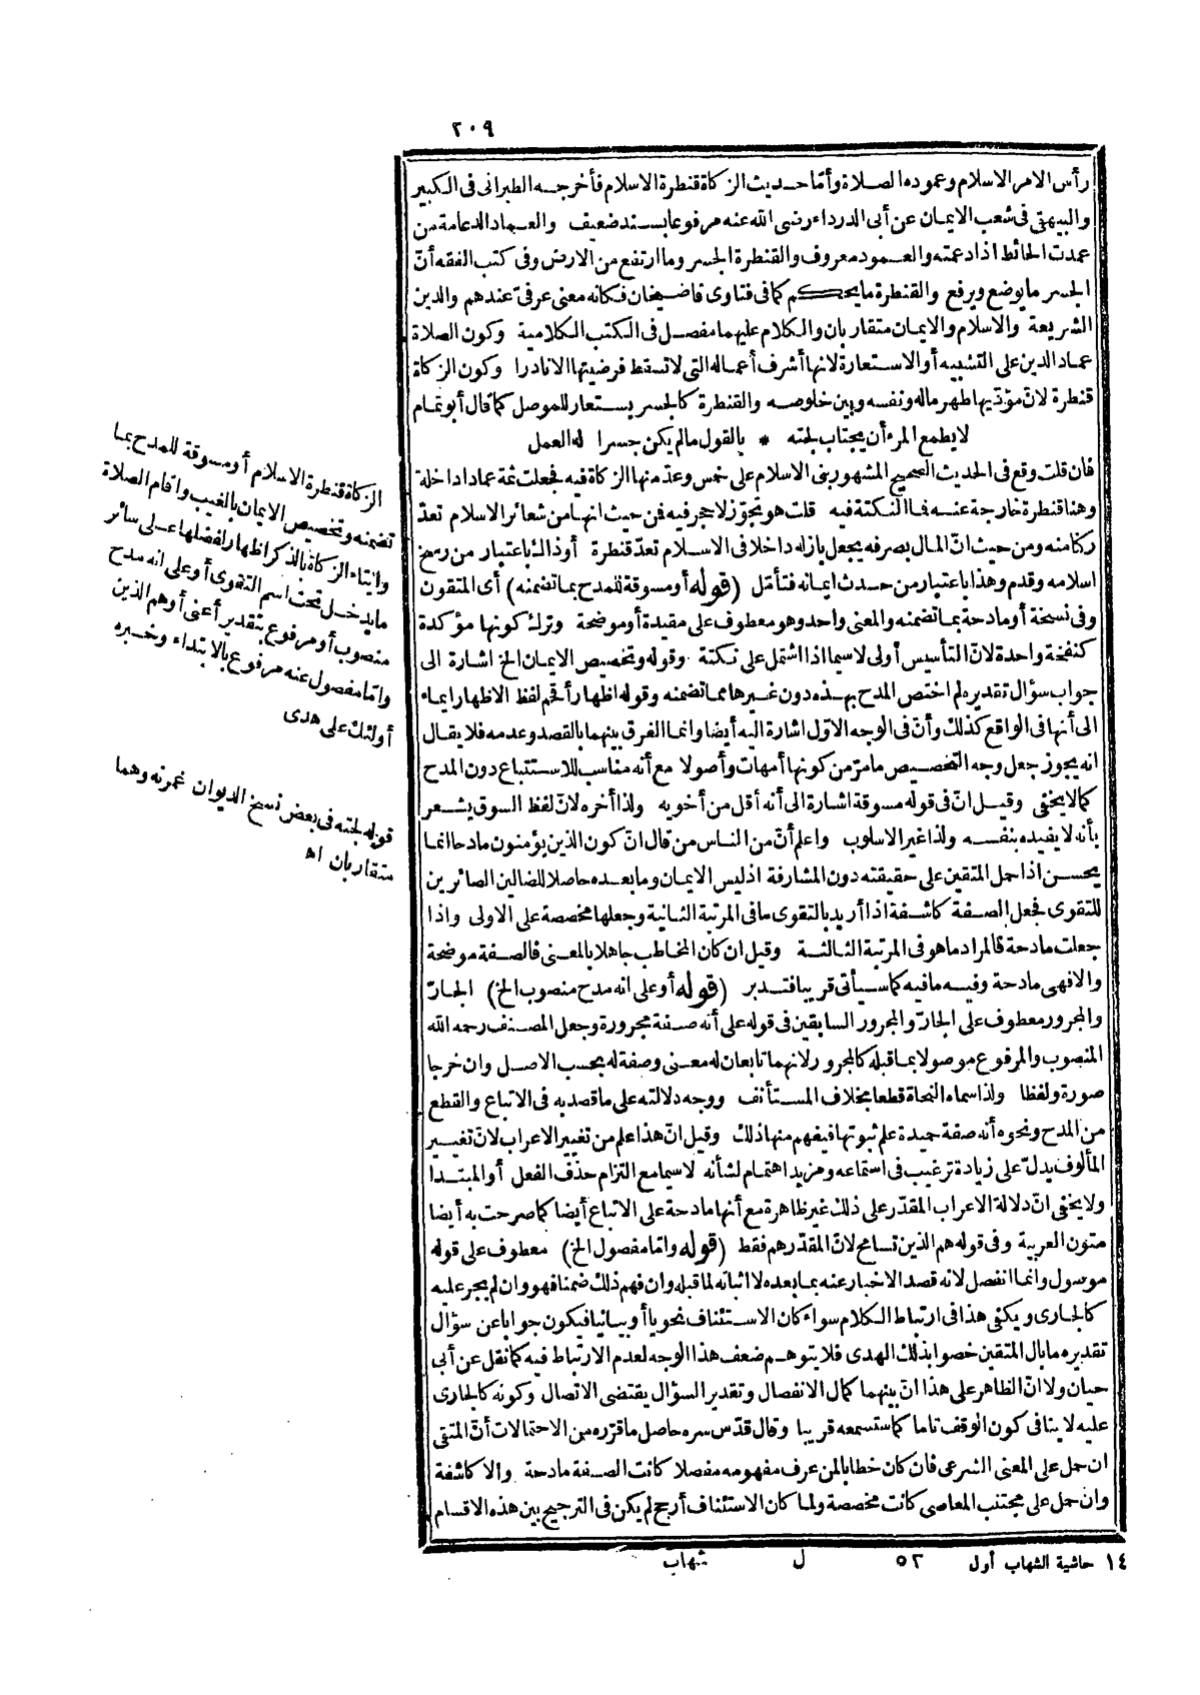 ٢٠٩
رأس الامر الاسلام وعموده الصلاة وأما حديث الزكاة قنطرة الاسلام فأخرجه الطبرانى فى الكبير
والبيهقى فى شعب الايمان عن أبى الدرداء رضى الله عنه مرفوعا بسند ضعيف والعماد الدعامة من
عمدت الحائط اذا دعمته والعمود معروف والقنطرة الجسر وما ارتفع من الارض وفى كتب الفقه أنّ
الجسر ما يوضع ويرفع والقنطرة ما يحكم كما فى فتاوى قاضيخان فكانه معنى عرفىّ عندهم والدين
الشريعة والاسلام والايمان متقاربان والكلام عليهما مفصل فى الكتب الكلامية وكون الصلاة
عماد الدين على التشبيه أو الاستعارة لانها أشرف أعماله التى لا تسقط فرضيتها الا نادرا وكون الزكاة
قنطرة لانّ مؤدّيها طهر ماله ونفسه وبين خلوصه والقنطرة كالجسر يستعار للموصل كما قال أبو تمام
لا يطمع المرء أن يجتاب لجته * بالقول ما لم يكن جسرا له العمل
فان قلت وقع فى الحديث الصحيح المشهور بنى الاسلام على خمس وعدّ منها الزكاة فيه فجعلت ثمة عمادا داخلة
وهنا قنطرة خارجة عنه فما النكتة فيه قلت هو تجوّز لا حجر فيه فمن حيث انها من شعائر الاسلام تعدّ
ركنا منه ومن حيث انّ المال بصرفه يجعل باذله داخلا فى الاسلام تعدّ قنطرة أو ذاك باعتبار من رسخ
اسلامه وقدم وهذا باعتبار من حدث ايمانه فتأمّل (قوله أو مسوقة للمدح بما تضمنه) أى المتقون
وفى نسخة أو مادحة بما تضمنه والمعنى واحد وهو معطوف على مقيدة أو موضحة وترك كونها مؤكدة
كنفخة واحدة لانّ التأسيس أولى لاسيما اذا اشتمل على نكتة وقوله وتخصيص الايمان الخ اشارة الى
جواب سؤال تقديره لم اختص المدح بهذه دون غيرها مما تضمنه وقوله اظهارا أقحم لفظ الاظهار ايماء
الى أنها فى الواقع كذلك وأنّ فى الوجه الاوّل اشارة اليه أيضا وانما الفرق بينهما بالقصد وعدمه فلا يقال
انه يجوز جعل وجه التخصيص ما مرّ من كونها أمهات وأصولا مع أنه مناسب للاستتباع دون المدح
كما لا يخفى وقيل انّ فى قوله مسوقة اشارة الى أنه أقل من أخويه ولذا أخره لانّ لفظ السوق يشعر
بأنه لا يفيده بنفسه ولذا غير الاسلوب واعلم أنّ من الناس من قال انّ كون الذين يؤمنون مادحا انما
يحسن اذا حمل المتقين على حقيقته دون المشارفة اذ ليس الايمان وما بعده حاصلا للضالين الصائرين
للتقوى فجعل الصفة كاشفة اذا أريد بالتقوى ما فى المرتبة الثانية وجعلها مخصصة على الاولى واذا
جعلت مادحة فالمراد ما هو فى المرتبة الثالثة وقيل ان كان المخاطب جاهلا بالمعنى فالصفة موضحة
والا فهى مادحة وفيه ما فيه كما سيأتى قريبا فتدبر (قوله أو على انه مدح منصوب الخ) الجارّ
والمجرور معطوف على الجارّ والمجرور السابقين فى قوله على أنه صفة مجرورة وجعل المصنف رحمه الله
المنصوب والمرفوع موصولا بما قبله كالمجرور لانهما تابعان له معنى وصفة له بحسب الاصل وان خرجا
صورة ولفظا ولذا سماه النحاة قطعا بخلاف المستأنف ووجه دلالته على ما قصد به فى الاتباع والقطع
من المدح ونحوه أنه صفة حميدة علم ثبوتها فيفهم منها ذلك وقيل انّ هذا علم من تغيير الاعراب لانّ تغيير
المألوف يدلّ على زيادة ترغيب فى استماعه ومزيد اهتمام لشأنه لاسيما مع التزام حذف الفعل أو المبتدا
ولا يخفى انّ دلالة الاعراب المقدّر على ذلك غير ظاهرة مع أنها مادحة على الاتباع أيضا كما صرحت به أيضا
متون العربية وفى قوله هم الذين تسامح لانّ المقدّر هم فقط (قوله واما مفصول الخ) معطوف على قوله
موصول وانما انفصل لانه قصد الاخبار عنه بما بعده لا اثباته لما قبله وان فهم ذلك ضمنا فهو وان لم يجر عليه
كالجارى ويكفى هذا فى ارتباط الكلام سواء كان الاستئناف نحويا أو بيانيا فيكون جوابا عن سؤال
تقديره ما بال المتقين خصوا بذلك الهدى فلا يتوهم ضعف هذا الوجه لعدم الارتباط فيه كما نقل عن أبى
حيان ولا انّ الظاهر على هذا انّ بينهما كمال الانفصال وتقدير السؤال يقتضى الاتصال وكونه كالجارى
عليه لا ينافى كون الوقف تاما كما ستسمعه قريبا وقال قدّس سره حاصل ما قرّره من الاحتمالات أنّ المتقى
ان حمل على المعنى الشرعى فان كان خطابا لمن عرف مفهومه مفصلا كانت الصفة مادحة والا كاشفة
وان حمل على مجتنب المعاصى كانت مخصصة ولما كان الاستئناف أرجح لم يكن فى الترجيح بين هذه الاقسام
الزكاة قنطرة الاسلام أو مسوقة للمدح بما
تضمنه وتخصيص الايمان بالغيب واقام الصلاة
وايتاء الزكاة بالذكر اظهار لفضلها على سائر
ما يدخل تحت اسم التقوى أو على انه مدح
منصوب أو مرفوع بتقدير أعنى أو هم الذين
واما مفصول عنه مرفوع بالابتداء وخبره
أولئك على هدى
قوله لجته فى بعض نسخ الديوان غمرته وهما
متقاربان اه
١٤ حاشية الشهاب أول ٥٢ ل شهاب